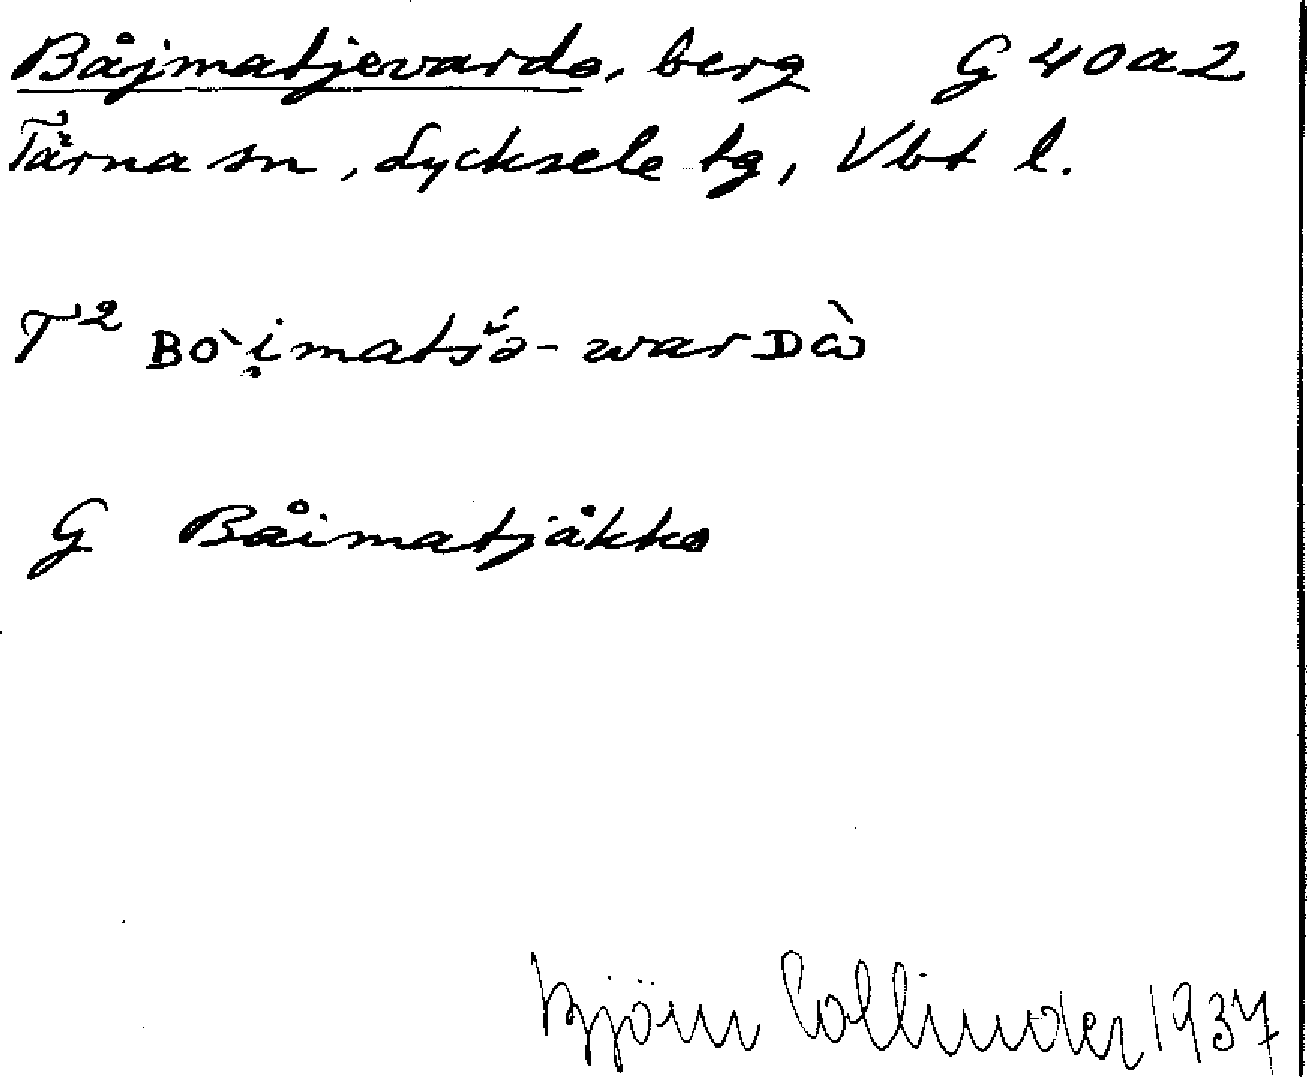 Båjmatjevardo, berg G 40 a 2
Tärna sn, Lycksele lg, Vbt l.
T² ʙò̯imatś́ə-warᴅὼ
G Båimatjåkko
Björn Collinder 1937